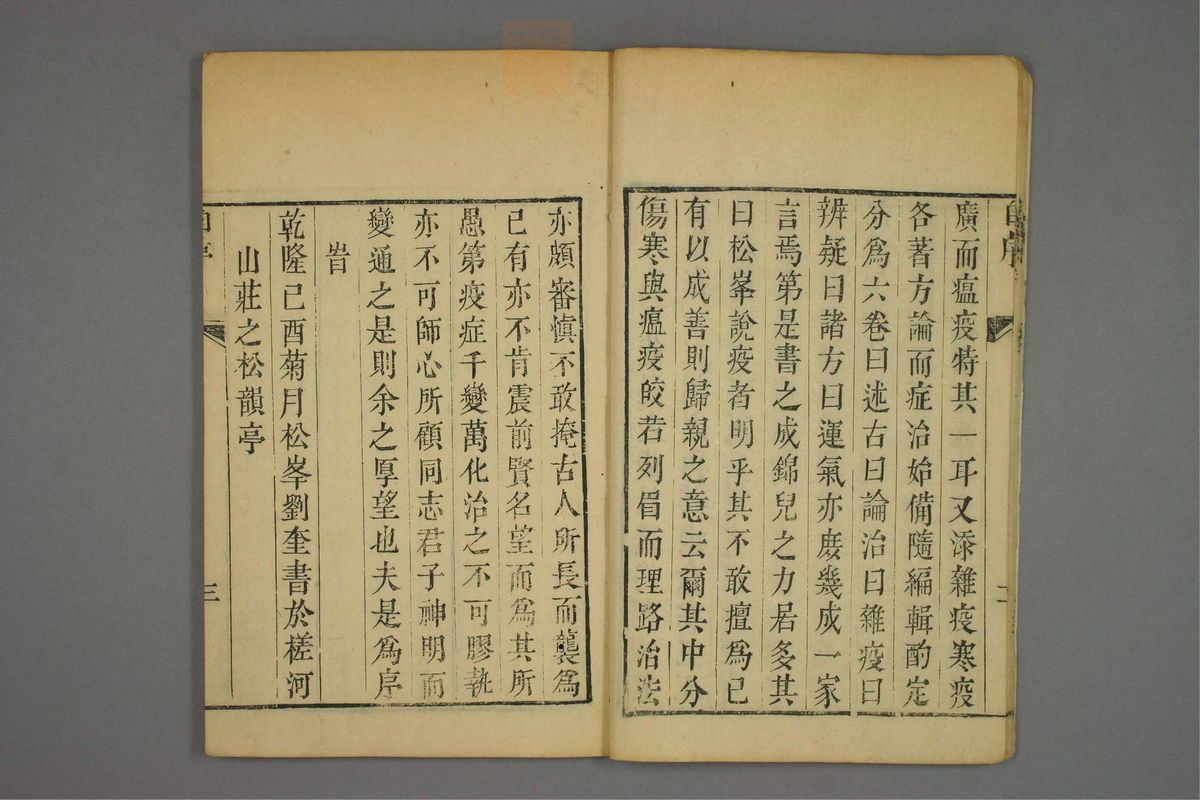 自序
廣而瘟疫特其一耳又添雜疫寒疫
各著方論而症治始備隨編輯酌定
分爲六卷曰述古曰論治曰雜疫曰
辨疑曰諸方曰運氣亦庶幾成一家
言焉第是書之成錦兒之力居多其
曰松峯說疫者明乎其不敢擅爲已
有以成善則歸親之意云爾其中分
傷寒與瘟疫皎若列眉而理路治法
二
亦頗審愼不敢掩古人所長而襲爲
已有亦不肯震前賢名望而爲其所
愚第疫症千變萬化治之不可膠執
亦不可師心所顧同志君子神明而
變通之是則余之厚望也夫是爲序
旹
乾隆己酉菊月松峯劉奎書於槎河
山莊之松韻亭
自序
三